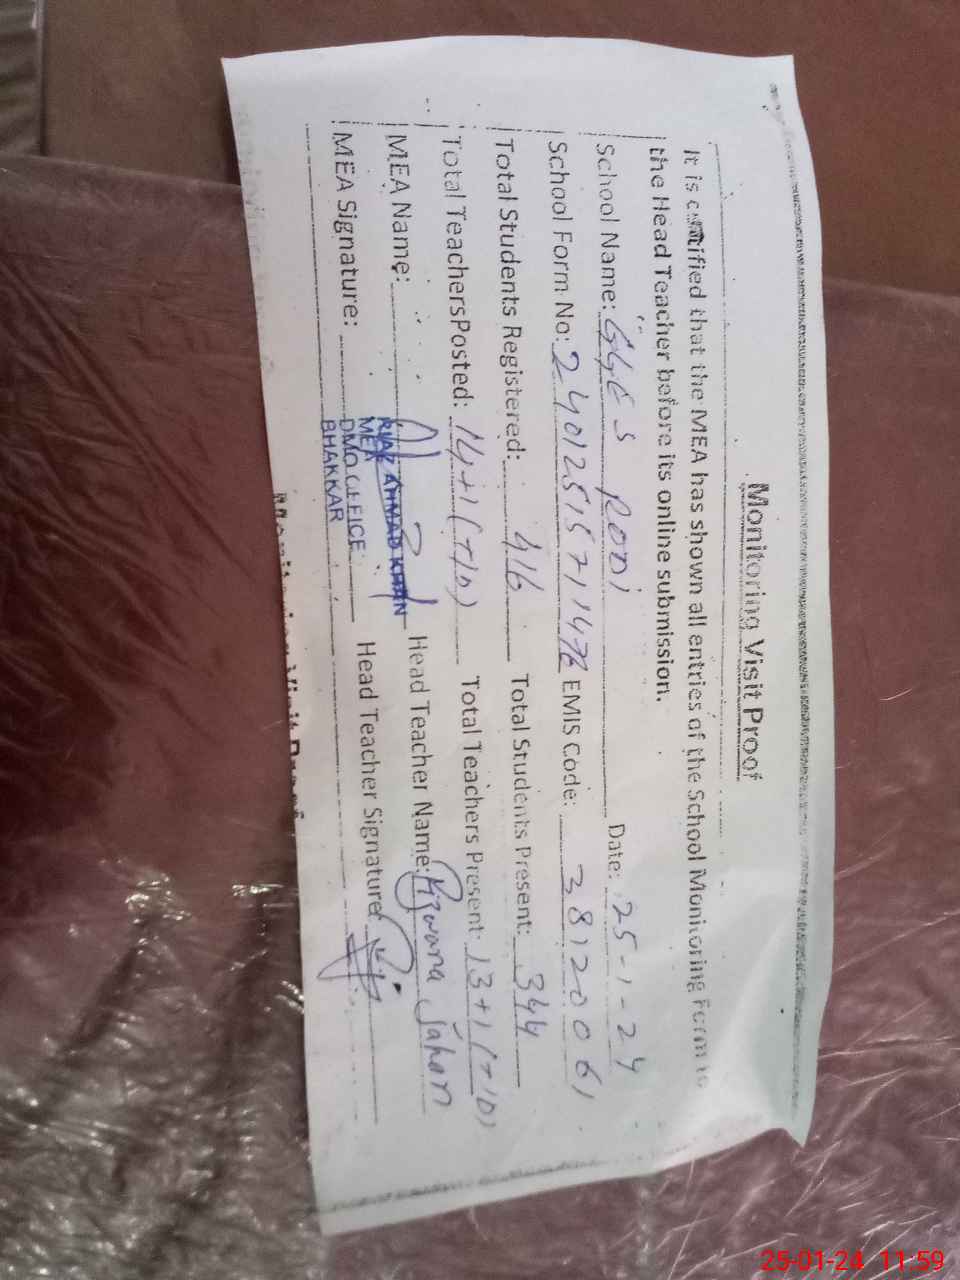 Monitoring Visit Proof
It is certified that the MEA has shown all entries of the School Monitoring Form to
the Head Teacher before its online submission.
School Name: GGES RODI Date: 25-1-24
School Form No: EMIS Code: 38120061
Total Students Registered: 416 Total Students Present: 344
Total TeachersPosted: 14+1 Total Teachers Present: 13+1
MEA Name: Head Teacher Name: Rizwana Jahan
MEA Signature: Head Teacher Signature:
RIAZ AHMAD KHAN
MEA
DMO OFFICE
BHAKKAR
Monitoring Visit Proof
25-01-24 11:59